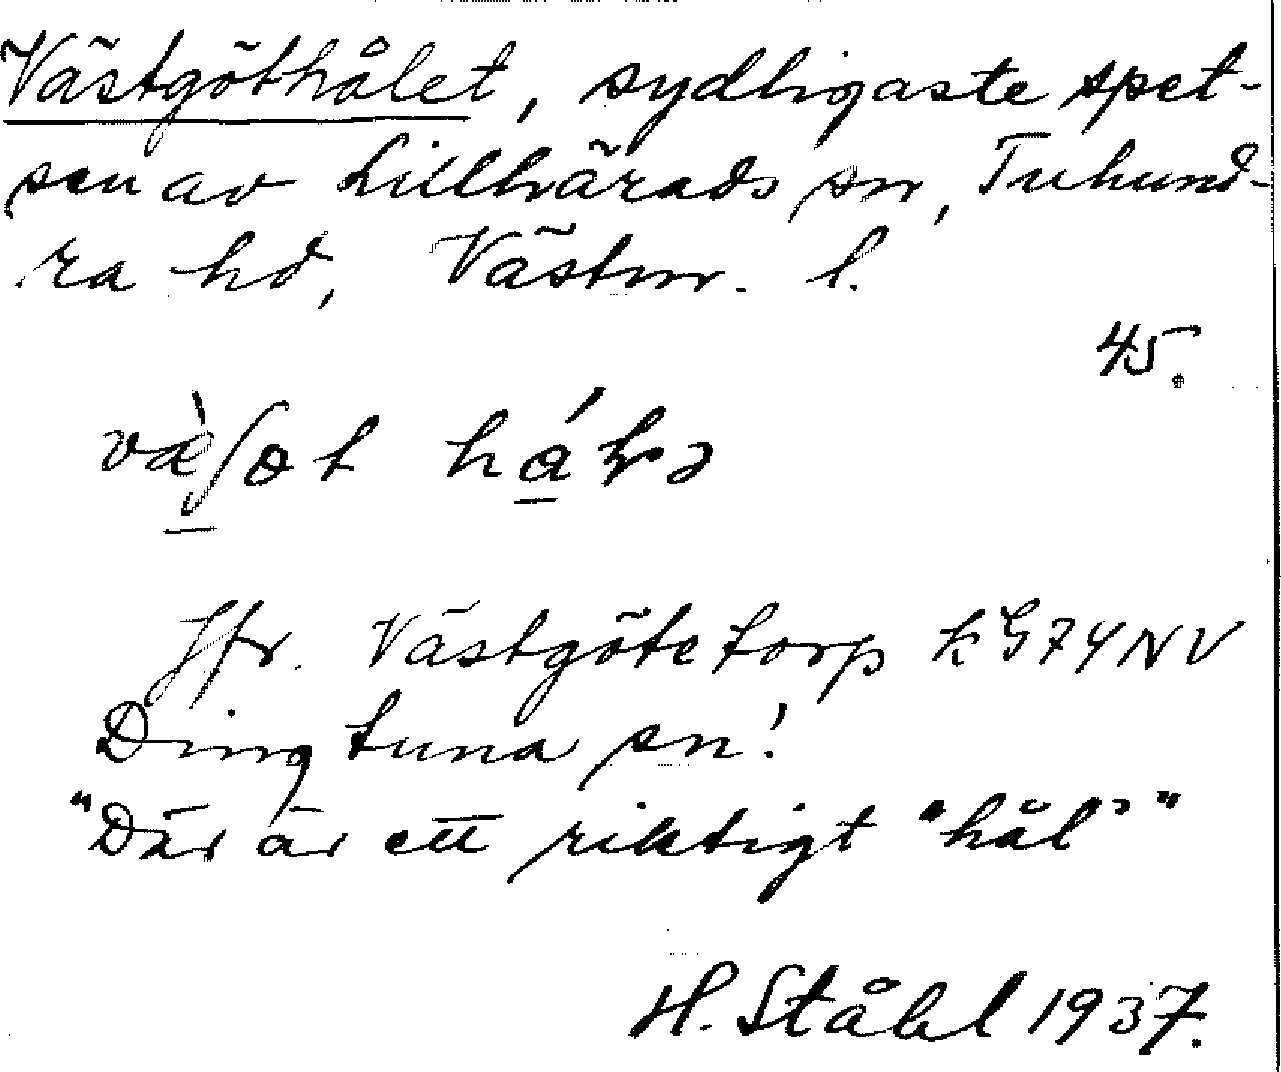 Västgöthålet, sydligaste spet-
sen av Lillhärads sn, Tuhund-
ra hd, Västm. l.
45.
Jfr. Västgötetorp k G74NV
Dingtuna sn!
"Där är ett riktigt "hål" "
H. Ståhl 1937.